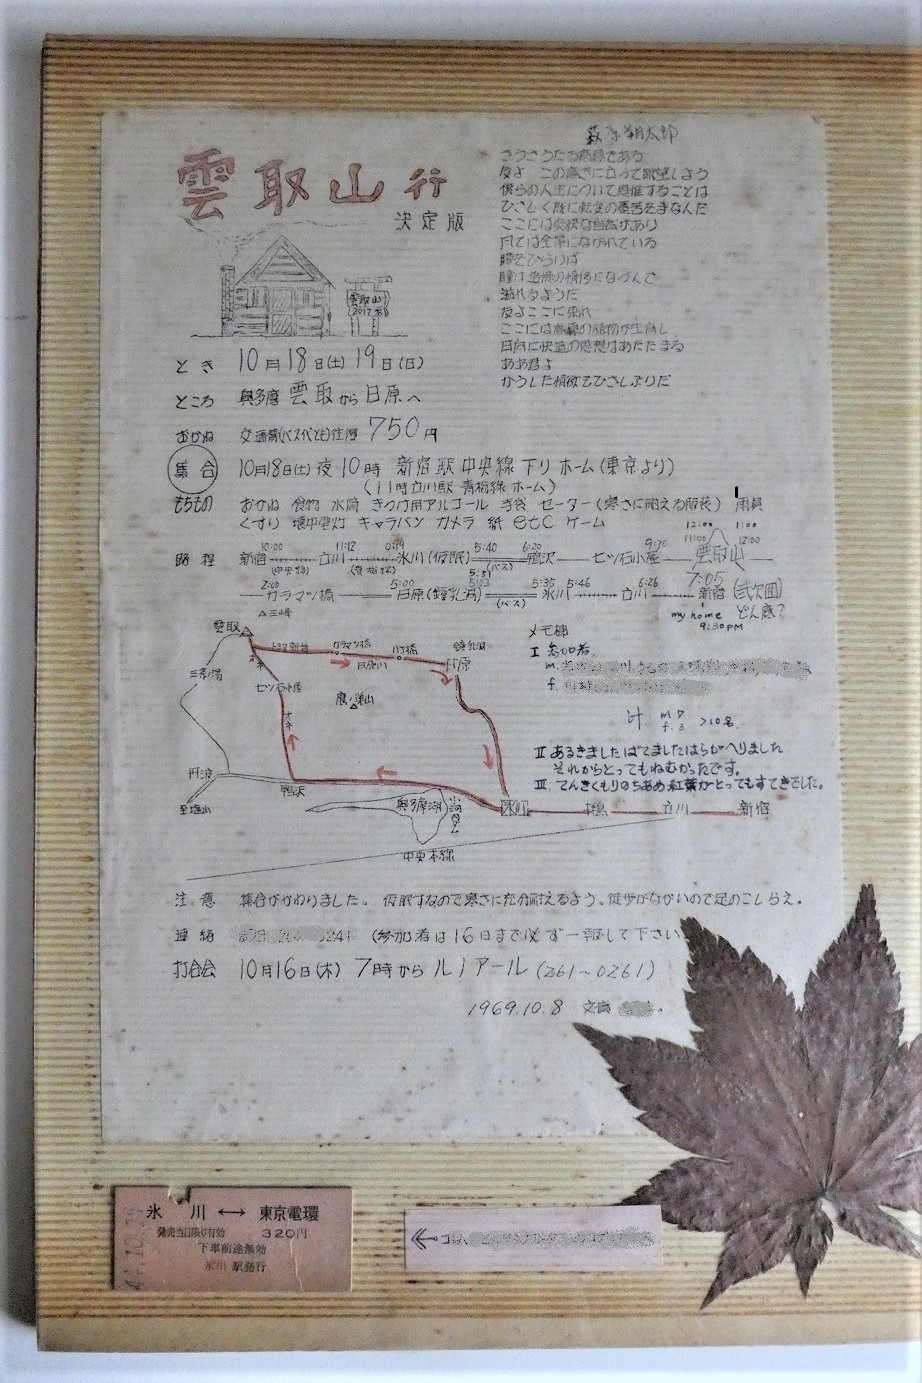 雲取山行
決定版
萩原朔太郎
さうさうたる高嶺である
友よ この高きに立つて眺望しよう
僕らの人生について思惟することは
ひさしく既に転変の憂苦をまなんだ
ここには爽快な自然があり
風は全景にながれている
瞳をひらけば
瞳は追憶の情侈になづんで
濡れるようだ
友よここに来れ
ここには高嶺の植物が生育し
日向に快適の思想はあたたまる
ああ君よ
かうした情歓もひさしぶりだ
雲取山
2017米
とき 10月18日(土) 19日(日)
ところ 奥多摩 雲取から日原へ
おかね 交通費(バス代とも)往復 750円
集合 10月18日(土)夜10時 新宿駅中央線下りホーム(東京より)
(11時立川駅 青梅線ホーム)
もちもの おかね 食物 水筒 きつけ用アルコール 手袋 セーター(寒さに耐える服装) 雨具
くすり 懐中電灯 キャラバン カメラ 紙 etc ゲーム
路程 新宿 10:00 (中央線) 11:12 立川 (青梅線) 0:19 氷川(仮眠) 5:40 (バス) 6:20 鴨沢 七ツ石小屋 9:30 11:00 12:00 雲取山 1:00 12:00
5:51
2:00 カラマツ橋 5:00 日原(鍾乳洞) 5:03 (バス) 5:35 氷川 5:46 立川 6:26 新宿 7:05 (弐次回)
my home 9:30PM どん底?
△三峰
雲取
カラマツ橋
八丁橋
日原川
鍾乳洞
日原
三条ノ湯
七ツ石小屋
オネ
鷹ノ巣山
オネ
丹波
至塩山
鴨沢
奥多摩湖
小河内ダム
氷川
立川
新宿
中央本線
メモ欄
I 参加者
m.
f.
計 m 7
f. 3 >10名
II あるきましたばてましたはらがへりました
それからとってもねむかったです。
III てんきくもりのちあめ紅葉がとってもすてきでした。
注意 集合がかわりました。 仮眠すなので寒さに充分耐えるよう。徒歩がながいので足のこしらえ。
連絡 3241 (参加者は16日まで必ず一報して下さい
打合会 10月16日(木) 7時からルノアール(261~0261)
1969.10.8 文責
氷川 ↔ 東京電環
発売当日限り有効 320円
下車前途無効
氷川駅発行